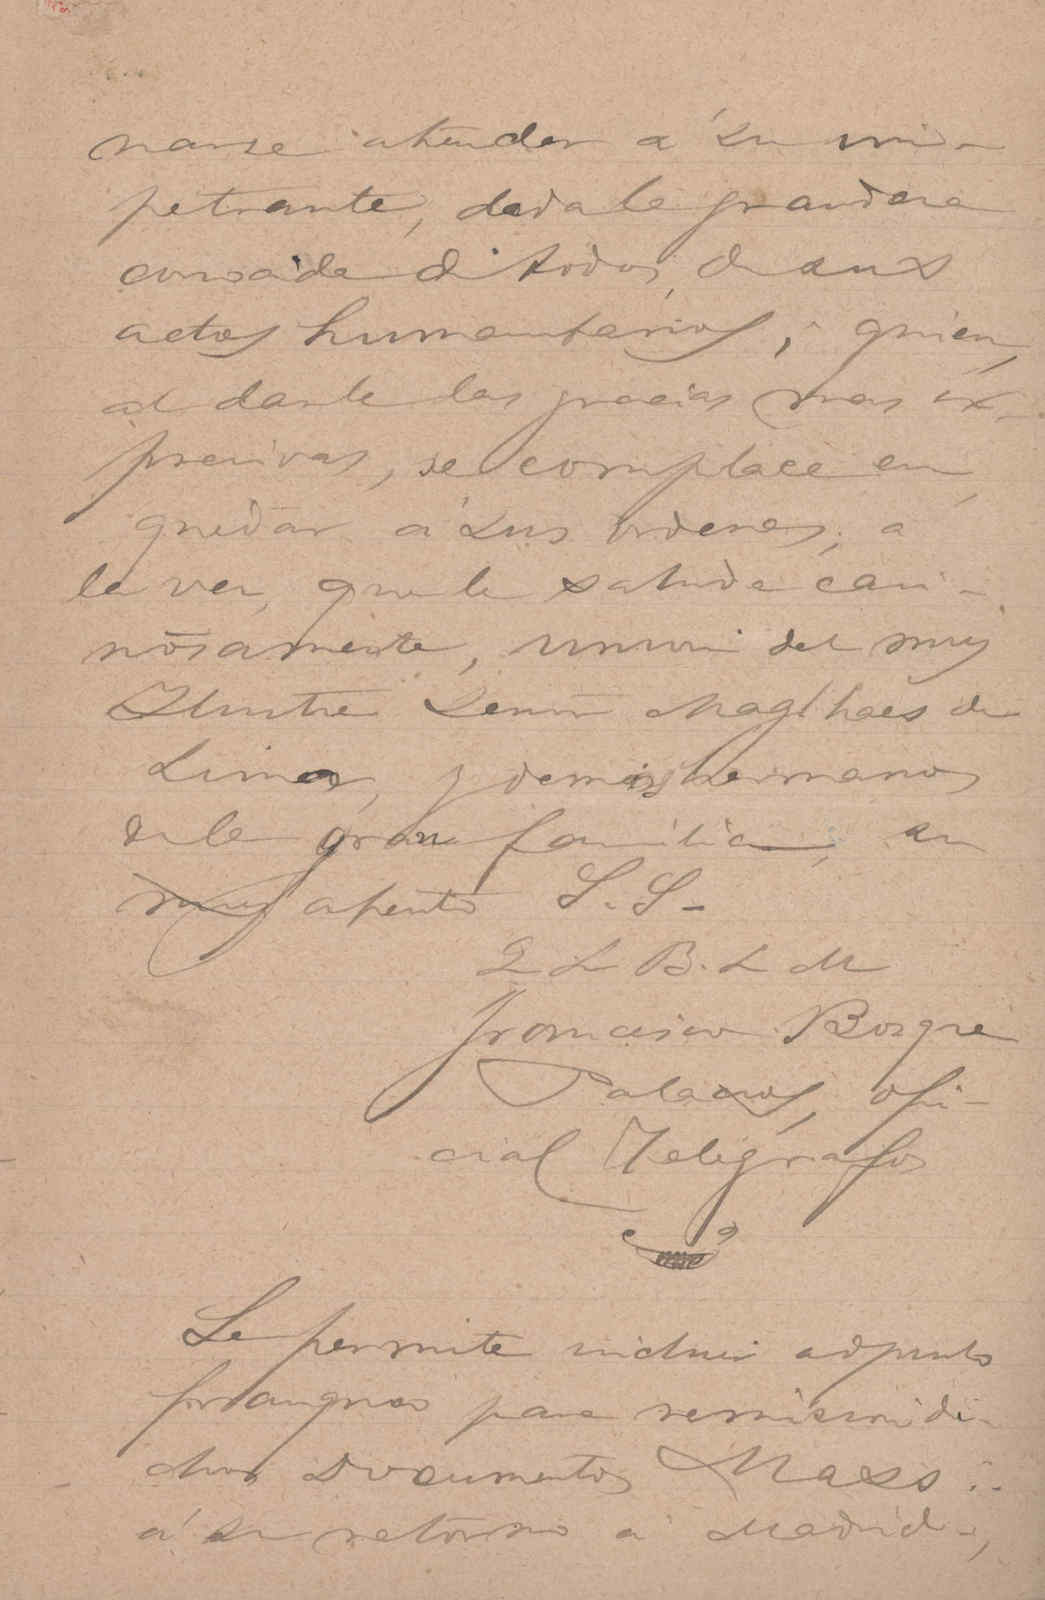 narse atender a su im-
petrante, dada la grandeza
conocida di todos, de sus
actos humanitarios, quien,
al darle las gracias mas ex-
presivas, se complace en
quedar á sus ordenes, a
la vez, que le saluda cari-
ñosamente, del muy
Ilustre Señor Maglhaes de
Lima, y demas hermanos
de la gran familia, su
muy atento S. S.
Q L B. L M
Francisco Bosque
Palacios, ofi-
cial Telégrafos
Le permite incluir adjunto
franqueo para remision di-
chos documentos Mass∴
á su retorno a Madrid,